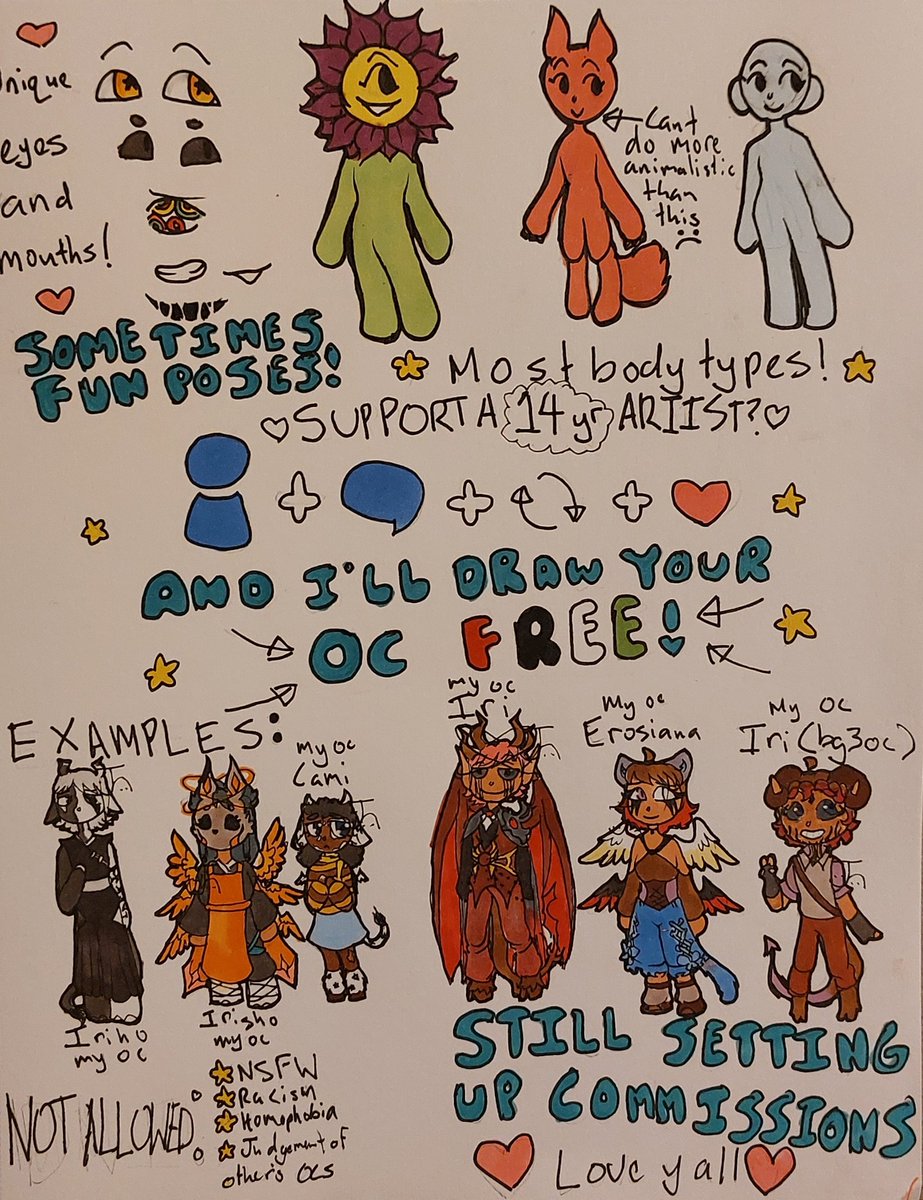 unique
eyes
and
mouths!
Cant
do more
animalistic
than
this
SOMETIMES
FUN POSES!
Most body types!
SUPPORT A 14 yr ARTIST?
AND I'LL DRAW YOUR
OC FREE!
EXAMPLES:
my oc
Cami
my oc
Iri
My oc
Erosiana
My oc
Iri (bg3oc)
Iriho
my oc
Irisho
my oc
NOT ALLOWED:
NSFW
Racism
Homophobia
Judgement of
other's OCs
STILL SETTING
UP COMMISSIONS
Love y'all